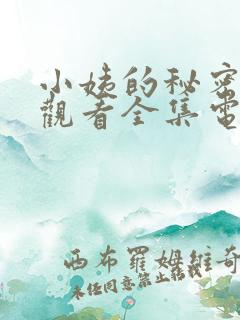 小姨的秘密
觀看全集電
西布羅姆維奇
未经同意禁止転載